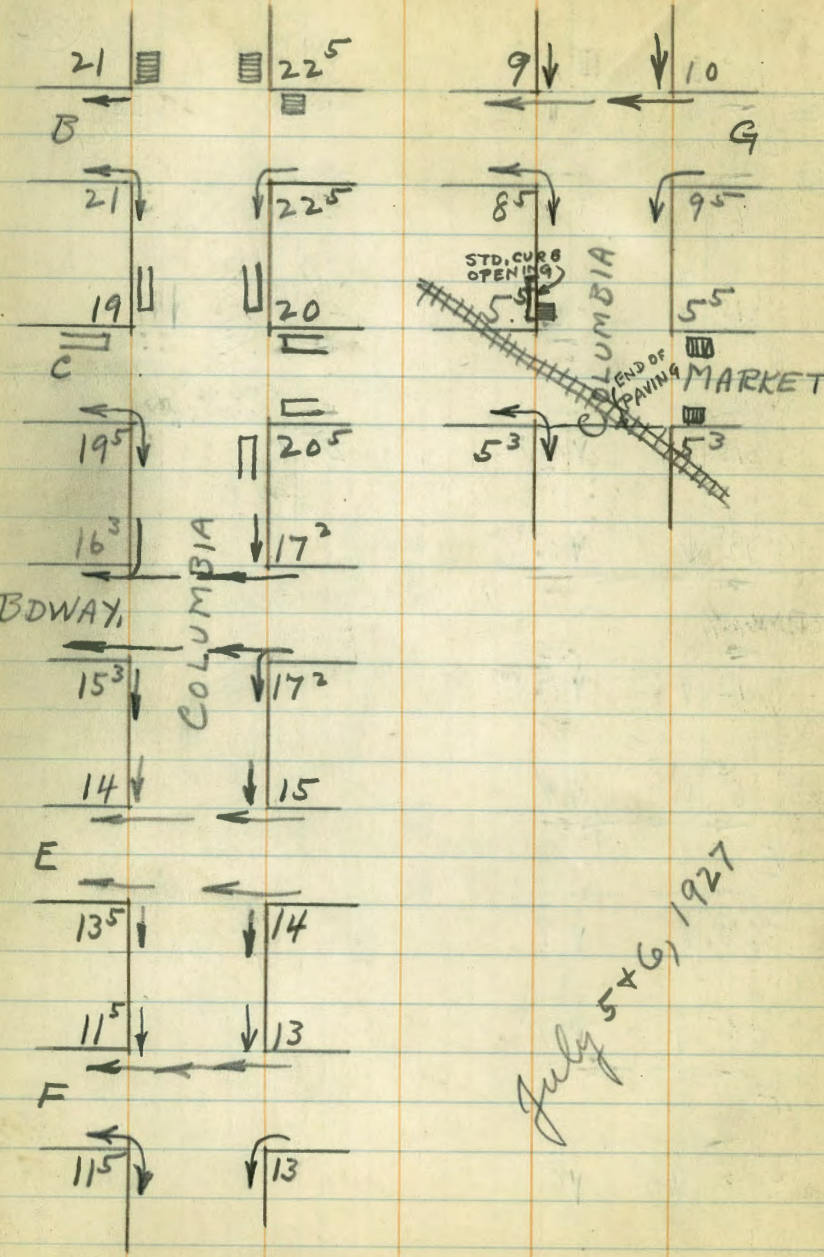 21 22⁵
B
21 22⁵
19 20
C
19⁵ 20⁵
16³ 17²
COLUMBIA
BDWAY.
15³ 17²
14 15
E
13⁵ 14
11⁵ 13
F
11⁵ 13
9 10
G
8⁵ 9⁵
STD. CURB
OPENING
COLUMBIA
5⁵ 5⁵
END OF
PAVING
MARKET
5³ 5³
July 5 & 6, 1927